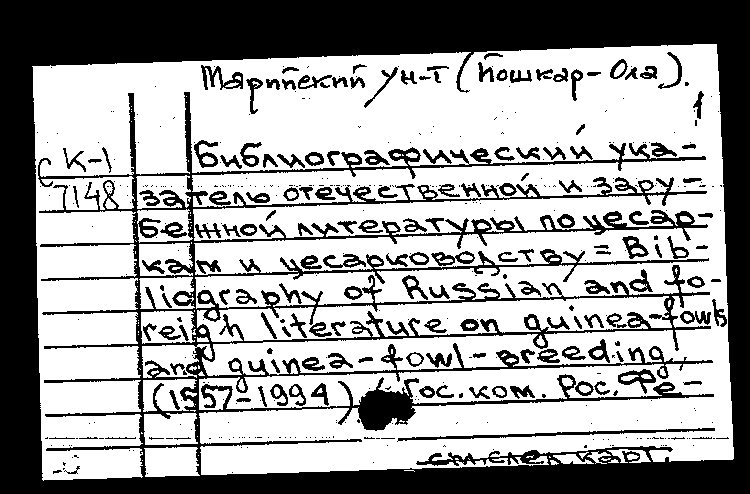 Марийский ун-т (Йошкар-Ола).
1
С К-1
7148
Библиографический ука-
затель отечественной и зару-
бежной литературы по цесар-
кам и цесарководству = Bib-
liography of Russian and fo-
reign literature on guinea-fowls
and guinea-fowl-breeding,
(1557-1994) / Гос. ком. Рос. Фе-
см. след. карт.